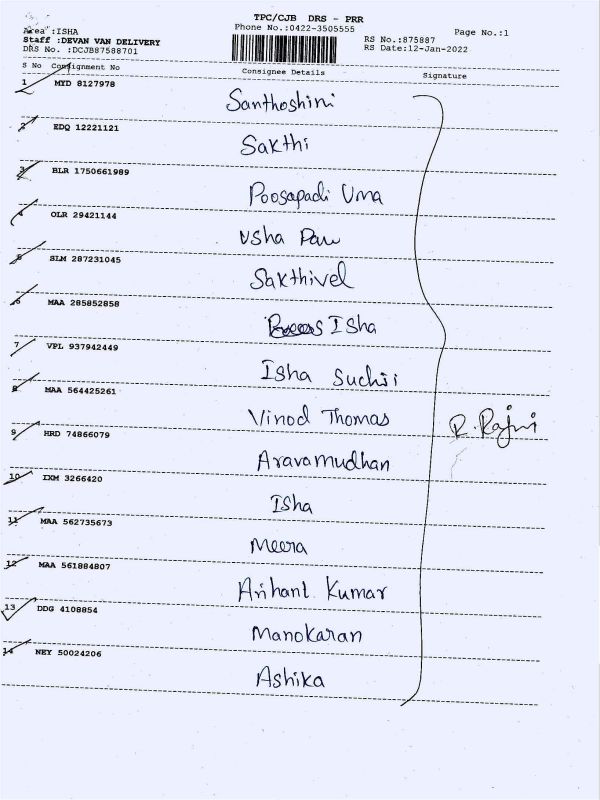 TPC/CJB DRS - PRR
Phone No.:0422-3505555
Page No.:1
Area :ISHA
Staff :DEVAN VAN DELIVERY
RS No.:875887
DRS No. :DCJB87588701
RS Date:12-Jan-2022
S No Consignment No Consignee Details Signature
1 MYD 8127978
Santhoshini
2 EDQ 12221121
Sakthi
3 BLR 1750661989
Poosapadi Uma
4 OLR 29421144
Usha
5 SLM 287231045
Sakthivel
6 MAA 285852858
Isha
7 VPL 937942449
Isha Suchii
8 MAA 564425261
Vinod Thomas
R. Rajni
9 HRD 74866079
Aravamudhan
10 IXM 3266420
Isha
11 MAA 562735673
Meera
12 MAA 561884807
Arihant Kumar
13 DDG 4108854
Manokaran
14 NEY 50024206
Ashika